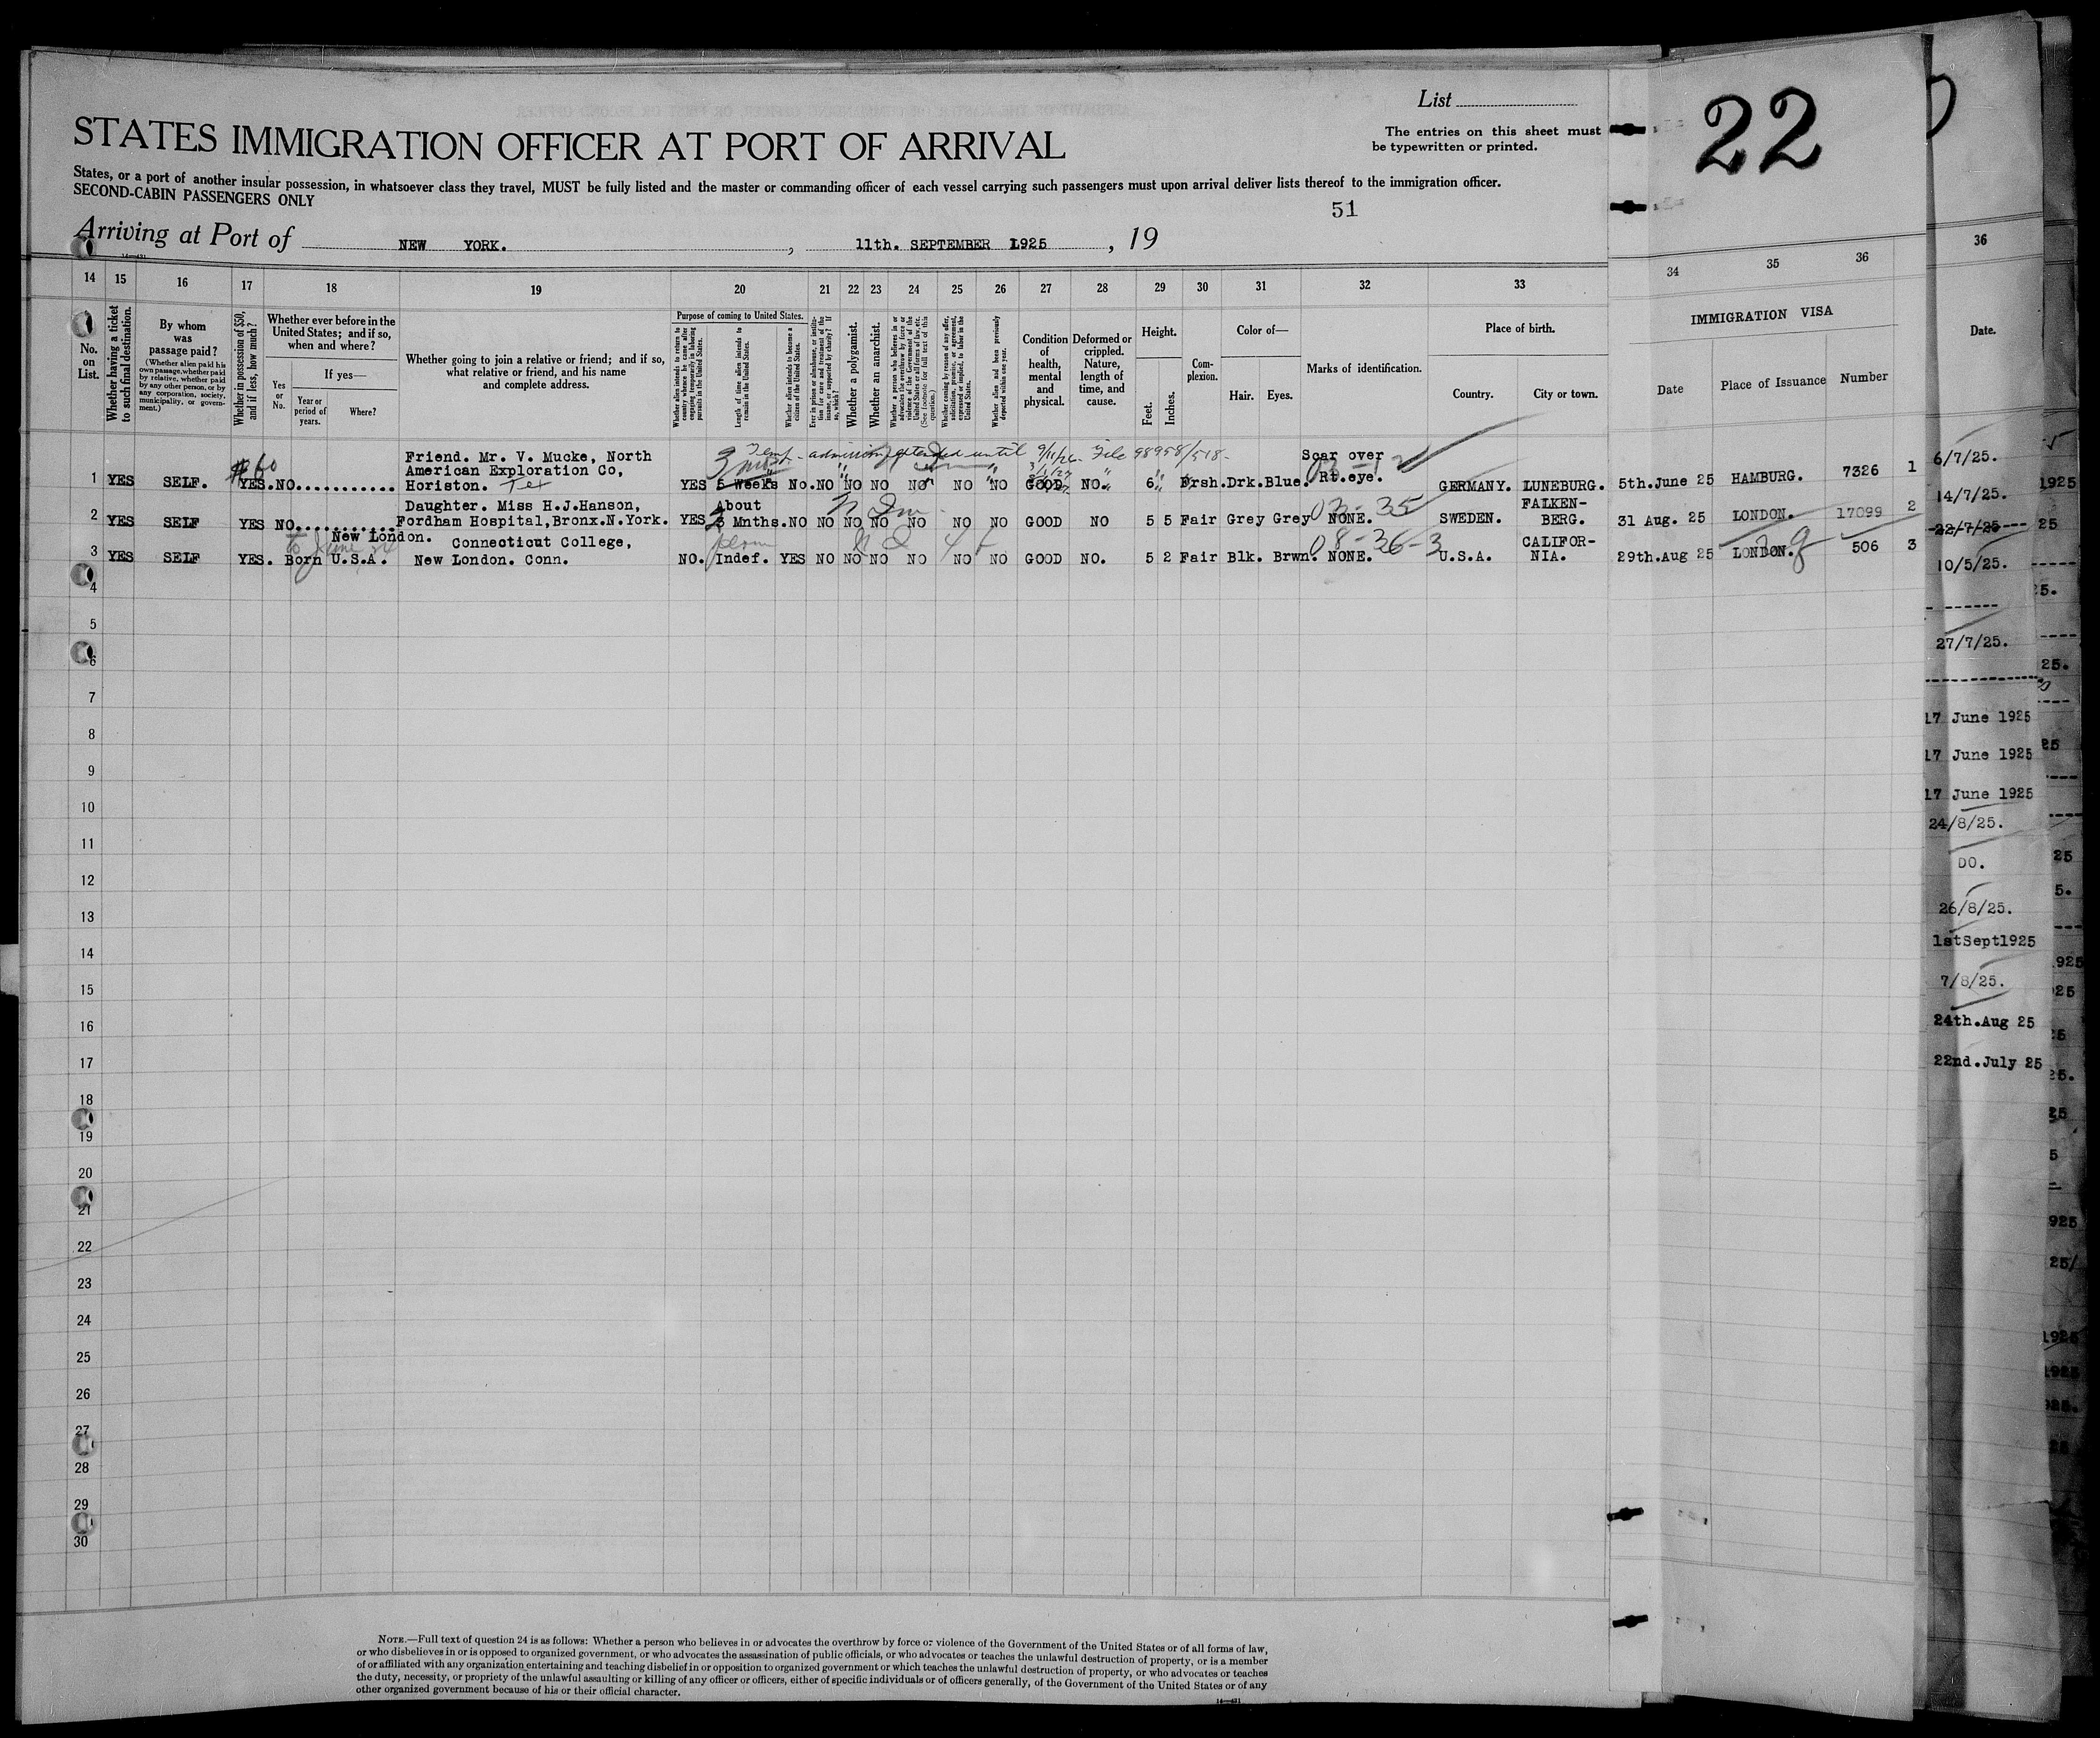 List
22
The entries on this sheet must
be typewritten or printed.
STATES IMMIGRATION OFFICER AT PORT OF ARRIVAL
States, or a port of another insular possession, in whatsoever class they travel, MUST be fully listed and the master or commanding officer of each vessel carrying such passengers must upon arrival deliver lists thereof to the immigration officer.
SECOND-CABIN PASSENGERS ONLY
51
Arriving at Port of NEW YORK. , 11th. SEPTEMBER 1925 , 19
14 15 16 17 18 19 20 21 22 23 24 25 26 27 28 29 30 31 32 33 34 35 36 36
No. on List.
Whether having a ticket to such final destination.
By whom was passage paid?
(Whether alien paid his own passage, whether paid by relative, whether paid by any other person, or by any corporation, society, municipality, or government.)
Whether in possession of $50, and if less, how much?
Whether ever before in the United States; and if so, when and where?
Yes or No.
If yes—
Year or period of years.
Where?
Whether going to join a relative or friend; and if so, what relative or friend, and his name and complete address.
Purpose of coming to United States.
Whether alien intends to return to country whence he came after engaging temporarily in laboring pursuits in the United States.
Length of time alien intends to remain in the United States.
Whether alien intends to become a citizen of the United States.
Ever in prison or almshouse, or institution for care and treatment of the insane, or supported by charity? If so, which?
Whether a polygamist.
Whether an anarchist.
Whether a person who believes in or advocates the overthrow by force or violence of the Government of the United States or all forms of law, etc. (See footnote for full text of this question.)
Whether coming by reason of any offer, solicitation, promise, or agreement, expressed or implied, to labor in the United States.
Whether alien had been previously deported within one year.
Condition of health, mental and physical.
Deformed or crippled. Nature, length of time, and cause.
Height.
Feet. Inches.
Complexion.
Color of—
Hair. Eyes.
Marks of identification.
Place of birth.
Country. City or town.
IMMIGRATION VISA
Date Place of Issuance Number
Date.
Temp. admission extended until 9/11/26 File 98958/518-
1 YES SELF. $60 YES. NO........... Friend. Mr. V. Mucke, North
American Exploration Co,
Horiston. Tex YES 3 mos. 5 Weeks No. NO NO NO NO NO NO GOOD NO. 6 Frsh. Drk. Blue. Scar over
Rt.eye. GERMANY. LUNEBURG. 5th.June 25 HAMBURG. 7326 1
2 YES SELF YES NO.......... Daughter. Miss H.J.Hanson,
Fordham Hospital,Bronx.N.York. YES About
3 Mnths. NO NO NO NO NO NO NO GOOD NO 5 5 Fair Grey Grey 03-35 NONE. SWEDEN. FALKEN-
BERG. 31 Aug. 25 LONDON. 17099 2
3 YES SELF YES. Born U.S.A. New London. Connecticut College,
New London. Conn. NO. Indef. YES NO NO NO NO NO NO GOOD NO. 5 2 Fair Blk. Brwn. 08-36-3 NONE. U.S.A. CALIFOR-
NIA. 29th.Aug 25 LONDON. 506 3
4
5
6
7
8
9
10
11
12
13
14
15
16
17
18
19
20
21
22
23
24
25
26
27
28
29
30
6/7/25.
14/7/25.
22/7/25
10/5/25.
27/7/25.
17 June 1925
17 June 1925
17 June 1925
24/8/25.
DO.
26/8/25.
1stSept1925
7/8/25.
24th.Aug 25
22nd.July 25
NOTE.—Full text of question 24 is as follows: Whether a person who believes in or advocates the overthrow by force or violence of the Government of the United States or of all forms of law,
or who disbelieves in or is opposed to organized government, or who advocates the assassination of public officials, or who advocates or teaches the unlawful destruction of property, or is a member
of or affiliated with any organization entertaining and teaching disbelief in or opposition to organized government or which teaches the unlawful destruction of property, or who advocates or teaches
the duty, necessity, or propriety of the unlawful assaulting or killing of any officer or officers, either of specific individuals or of officers generally, of the Government of the United States or of any
other organized government because of his or their official character.
14—431